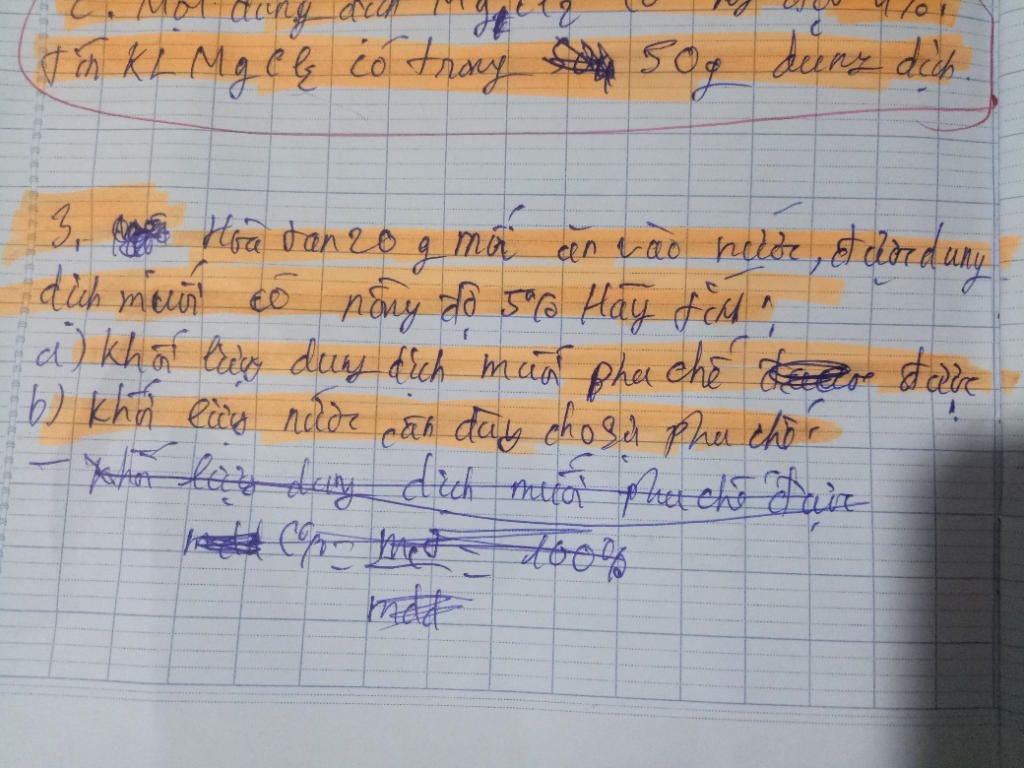 c. Một dung dịch MgCl2 có nồng độ 4%.
Tín KL MgCl2 có trong 50g dung dịch.
3. Hoà tan 20 g muối ăn vào nước, được dung
dịch muối có nồng độ 5% Hãy tím:
a) Khối lượng dung dịch muối pha chế được
b) Khối lượng nước cần dùng cho sự pha chế
- Khối lượng dung dịch muối pha chế được
mdd C% = mct 100%
mdd